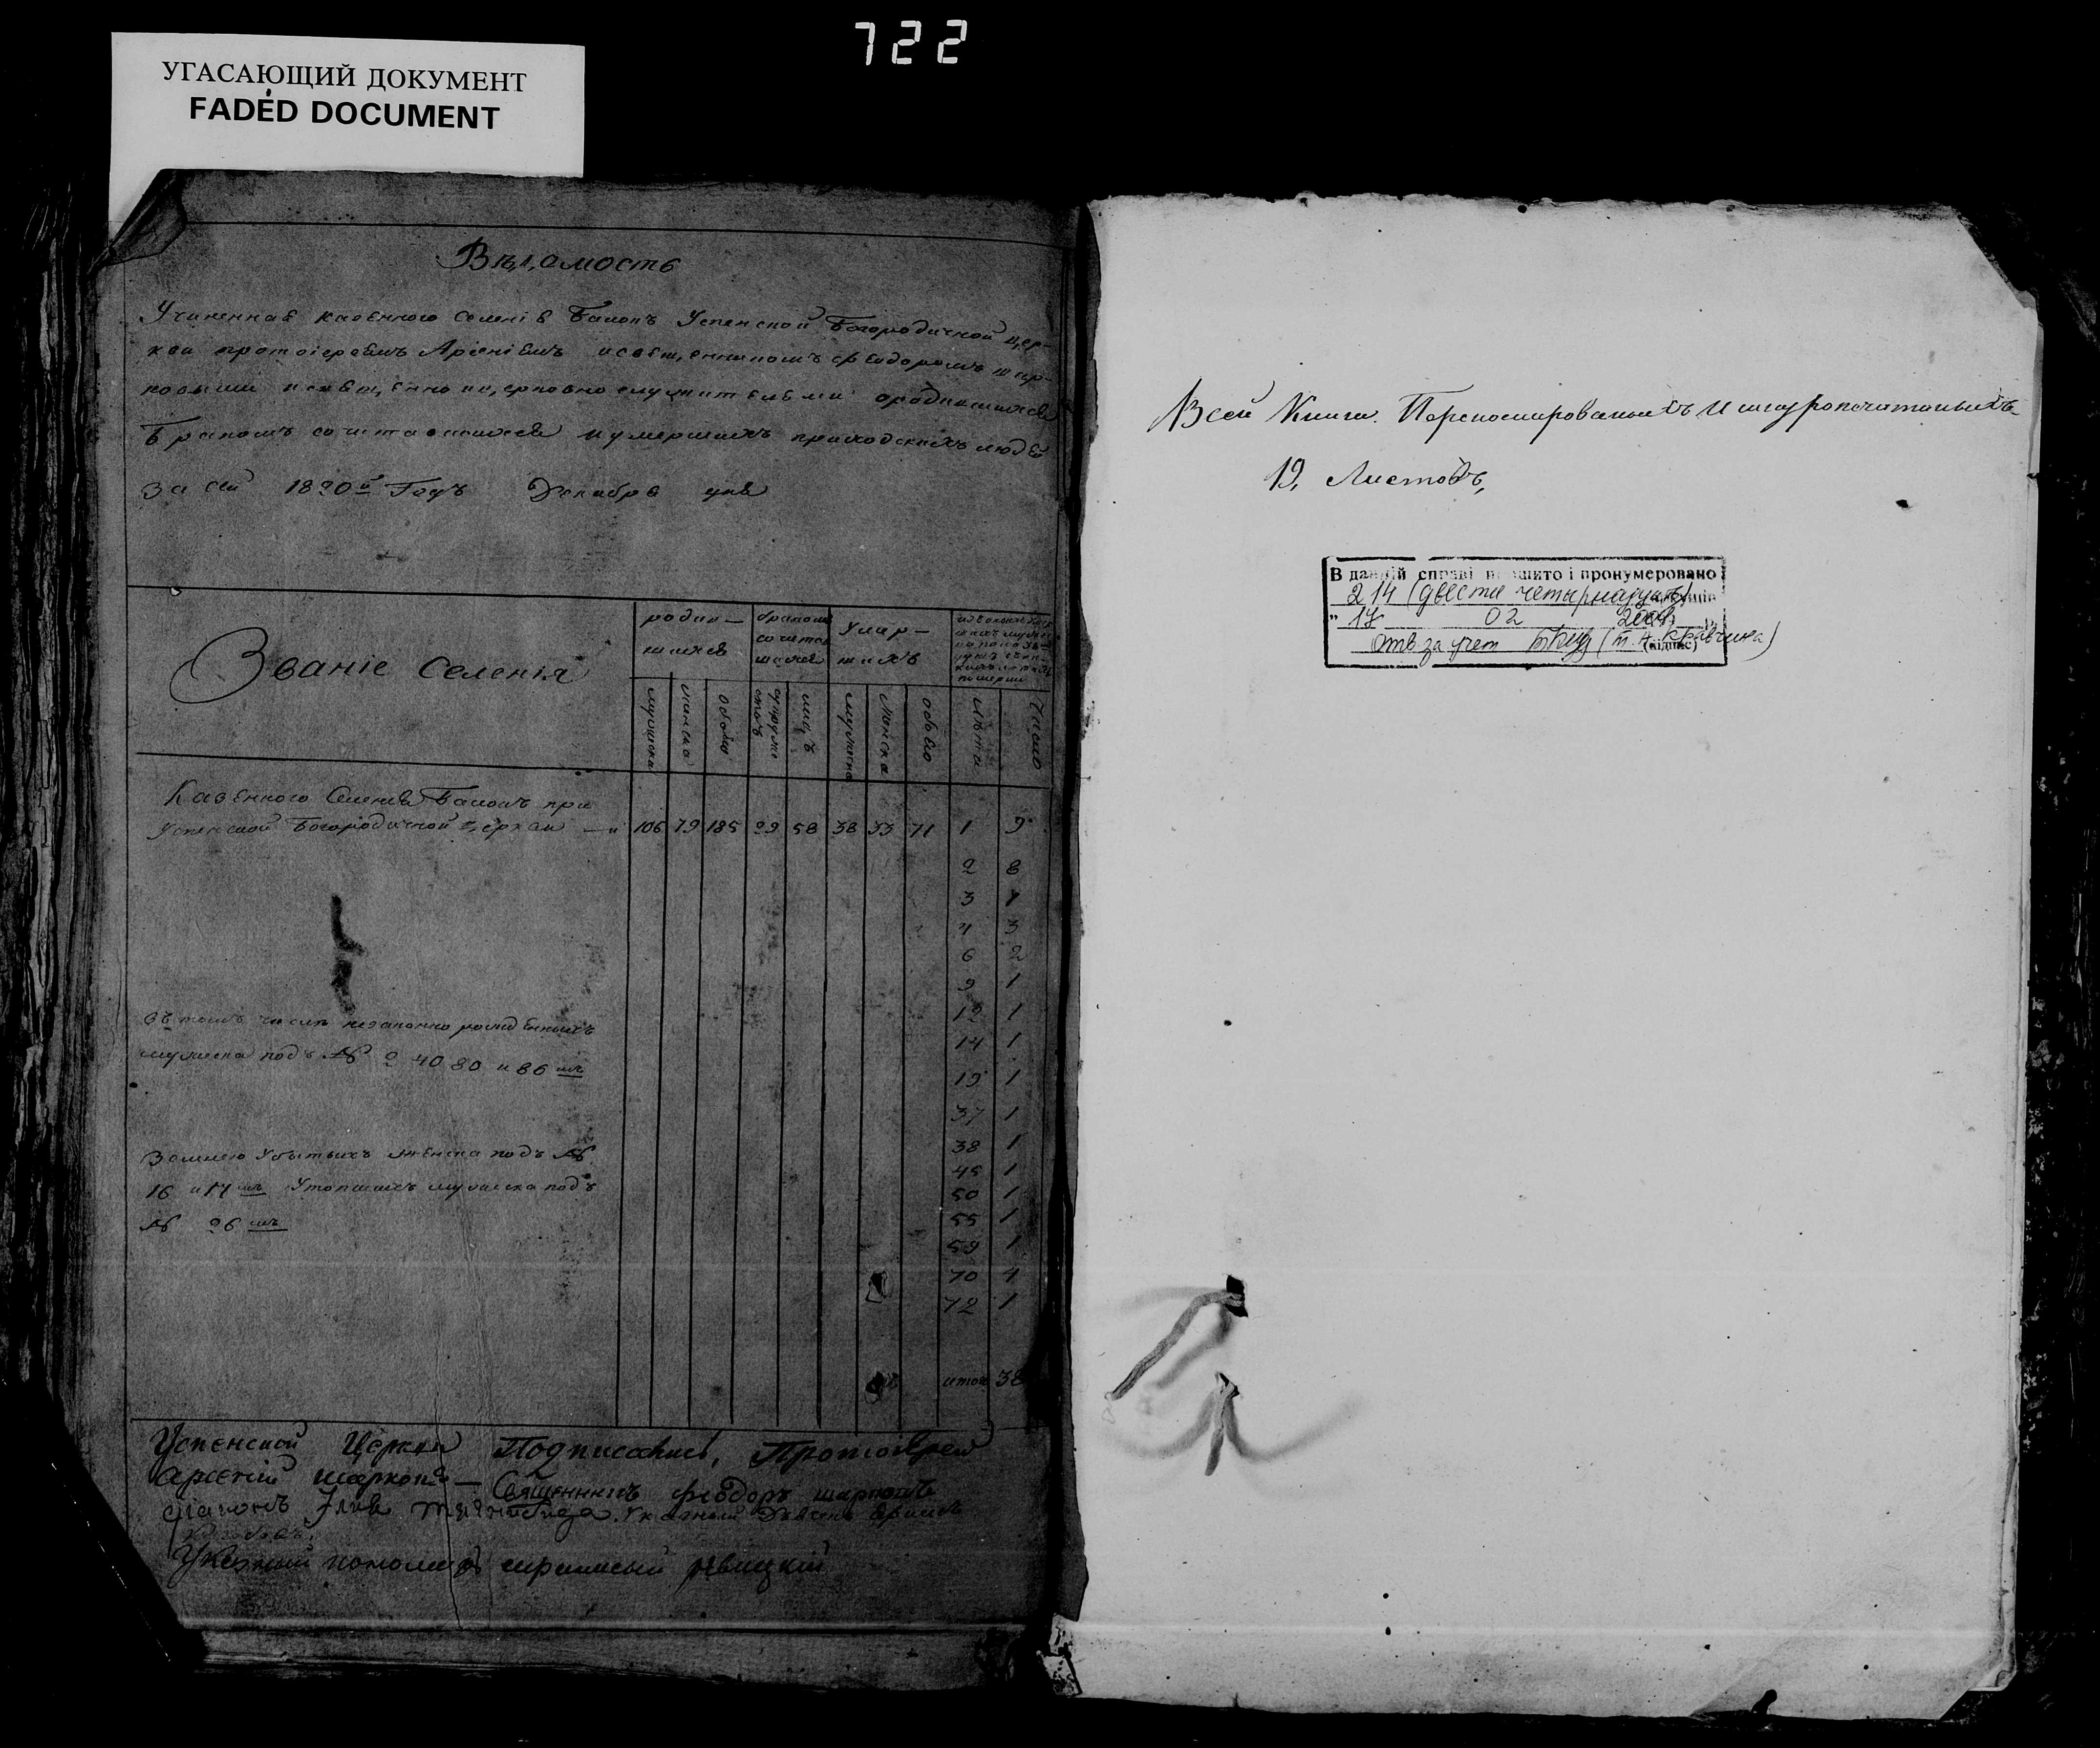 722
УГАСАЮЩИЙ ДОКУМЕНТ
FADED DOCUMENT
Вѣдомость
Учиненная казенного селенія Балокъ Успенской Богородичной цер-
кви протоіереемъ Арсеніемъ и священникомъ Феодоромъ шар-
ковыми и священно и церковно служителями о родившихся
Бракомъ сочетавшихся и умершихъ приходскихъ людей
За сей 1820й Годъ Декабря дня
Званіе Селенія
родив-
шихся
бракомъ
сочетав
шихся
Умер-
шихъ
мужеска
женска
обоего
супруже
ствъ
лицъ
мужеска
женска
обоего
Лѣта
Число
Казенного Селенія Балокъ при
Успенской Богородичной церкви 106 79 185 29 58 38 33 71 1 9
2 8
3 1
4 3
6 2
9 1
12 1
14 1
19 1
37 1
38 1
45 1
50 1
55 1
59 1
70 4
72 1
итого 38
Въ томъ числѣ незаконно рожденныхъ
мужеска подъ № 2 40 80 и 86мъ
Землею Убытыхъ женска подъ №
16 и 17мъ Утопшихъ мужеска подъ
№ 26мъ
Успенской Церкви Подписались, Протоіерей
Арсеній шарковъ — Священникъ феодоръ шарковъ
діаконъ Указный Дьячокъ
Указный пономарь
Всей Книги Перенумерованыхъ И шнуропечатаныхъ
19, Листовъ,
В даній справі прошито і пронумеровано
214 (двести четырнадцать)
" 17 02 2004
Отв за учет (Т. А. Кравчина)
(підпис)